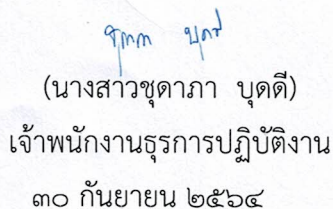 (นางสาวชุดาภา บุดดี)
เจ้าพนักงานธุรการปฏิบัติงาน
๓๐ กันยายน ๒๕๖๔